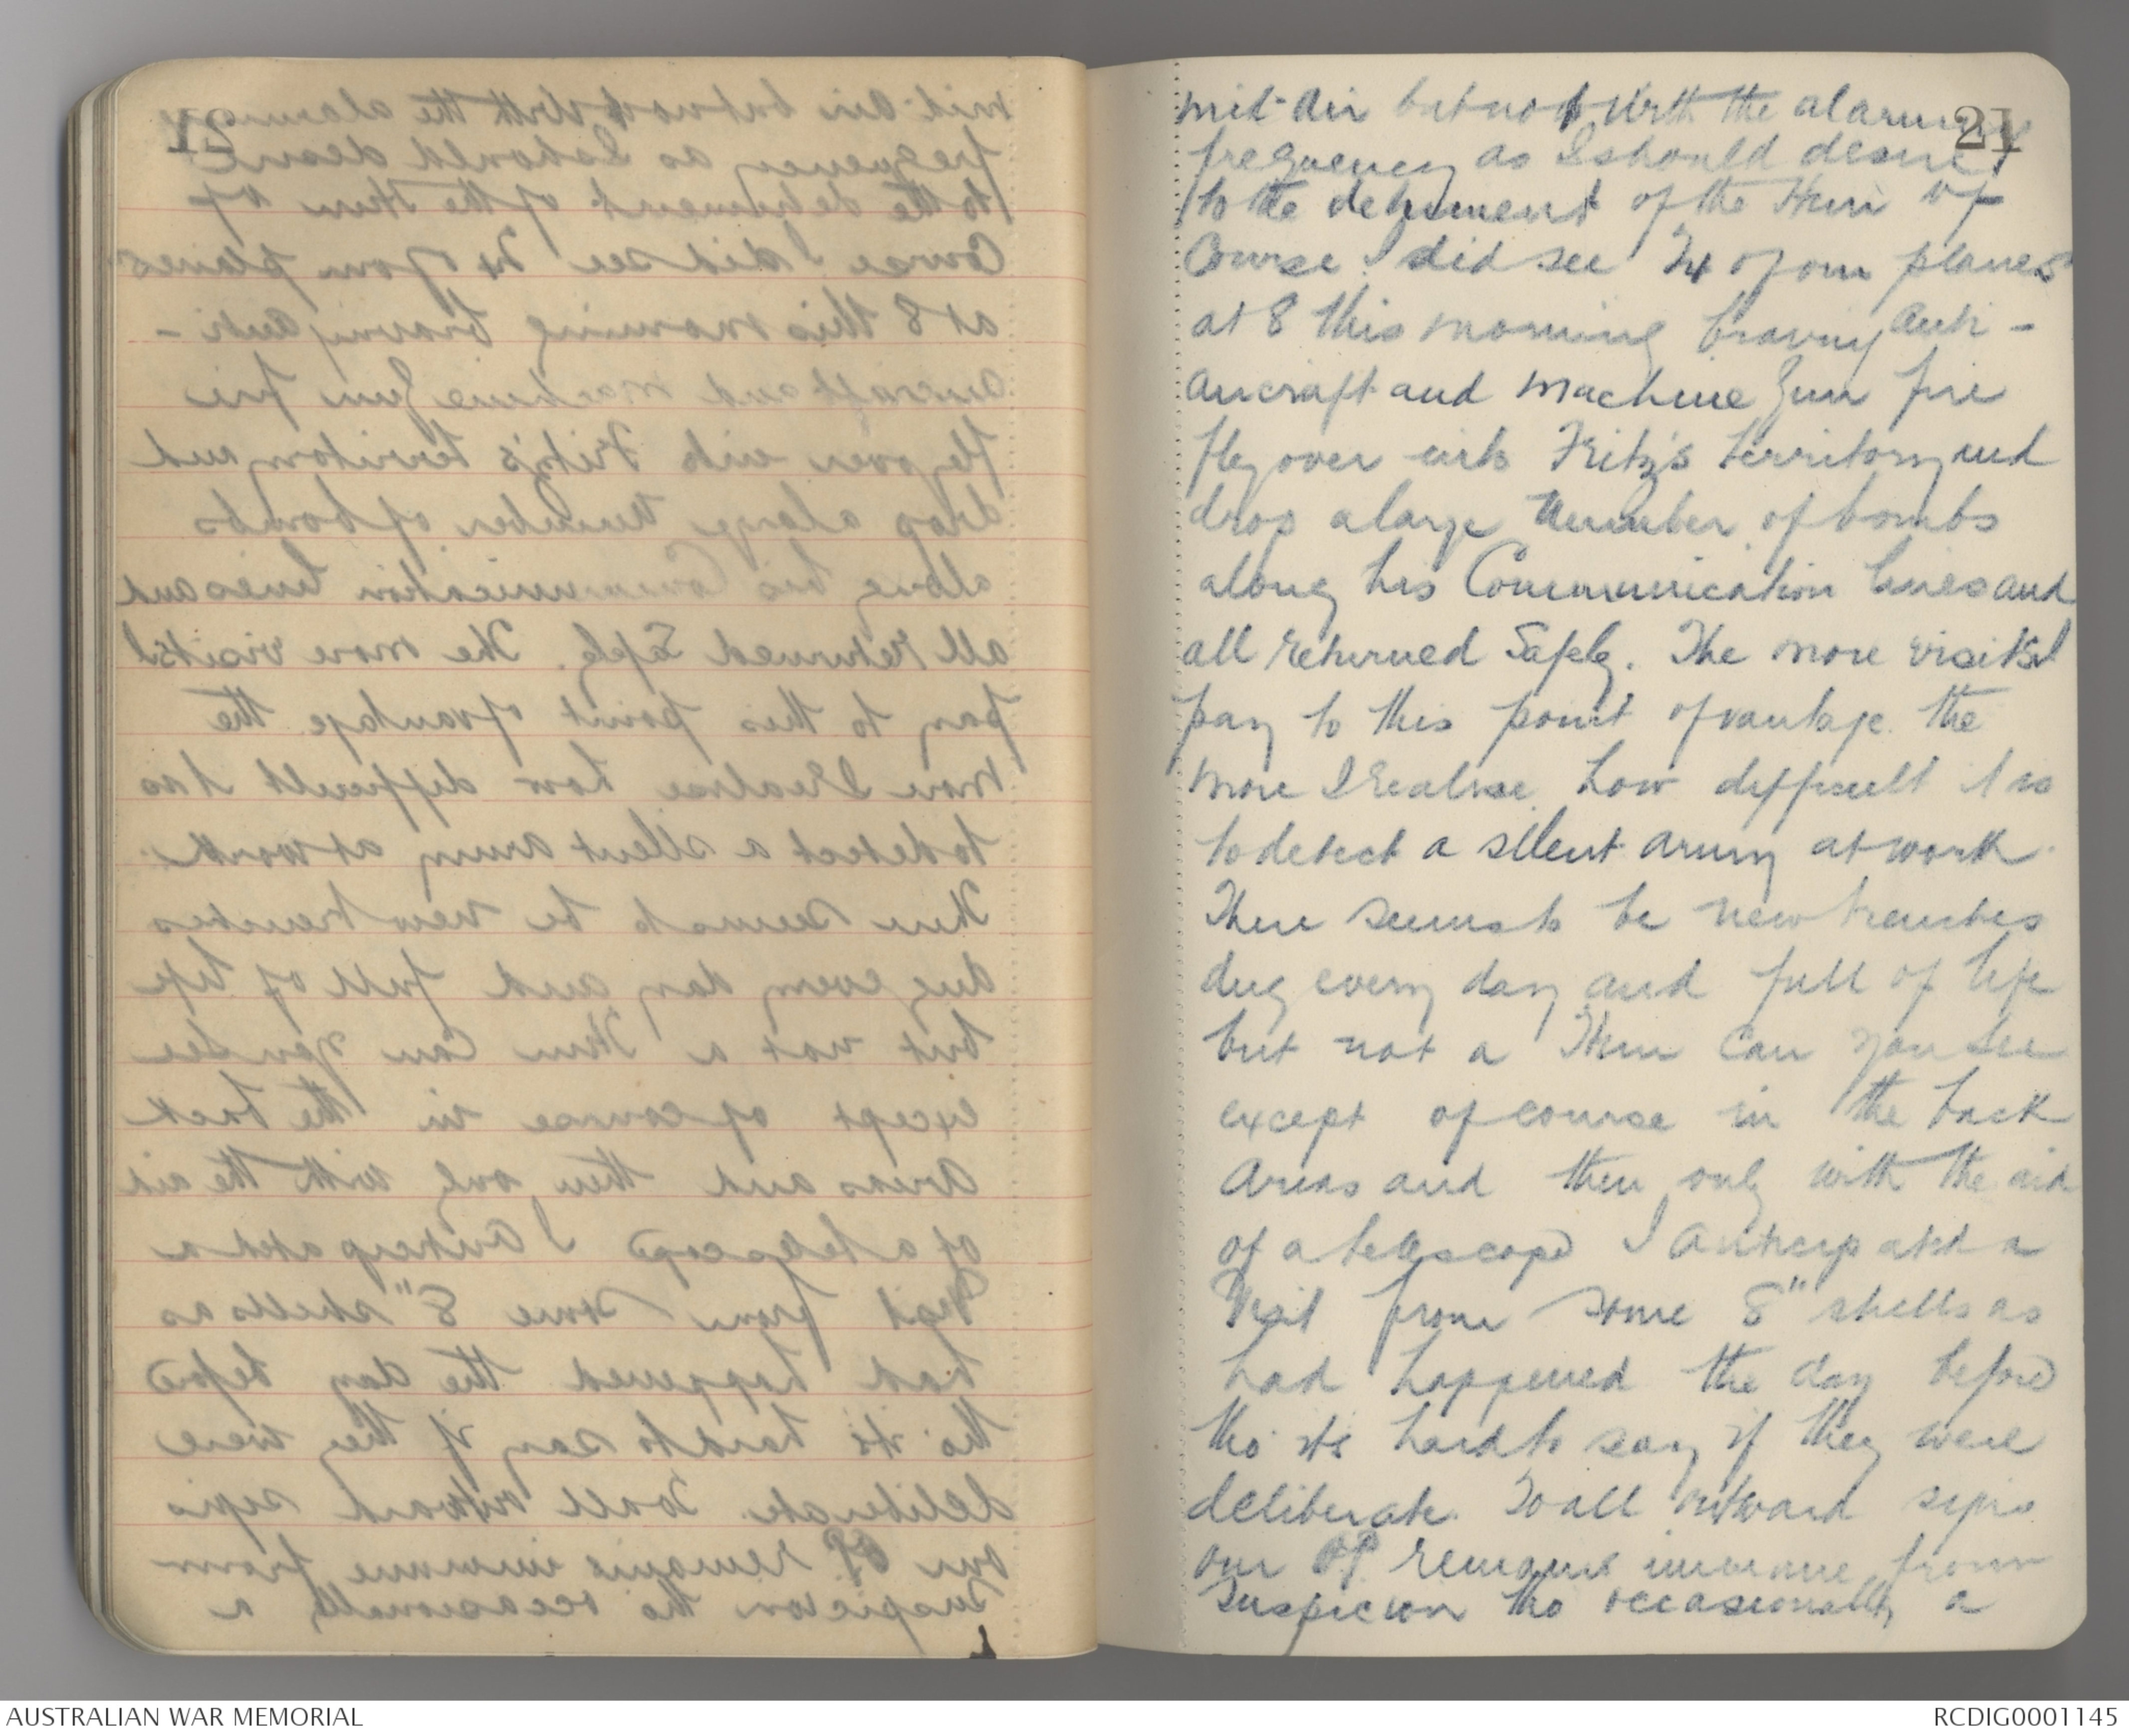 21
mid-air but not with the alarming
frequency as I should desire
to the detriment of the Hun of
Course. I did see 24 of our planes
at 8 this morning braving anti-
aircraft and machine gun fire
fly over into Fritz's territory and
drop a large number of bombs
along his Communication lines and
all returned safely. The more visits I
pay to this point of vantage the
more I realise how difficult it is
to detect a silent army at work.
There seems to be new trenches
dug every day and full of life
but not a Hun can you see
except of course in the back
areas and then only with the aid
of a telescope I anticipated a
visit from some 8" shells as
had happened the day before
tho' its hard to say if they were
deliberate. To all outward signs
our OP. remains immune from
suspicion tho occasionally a
AUSTRALIAN WAR MEMORIAL
RCDIG0001145